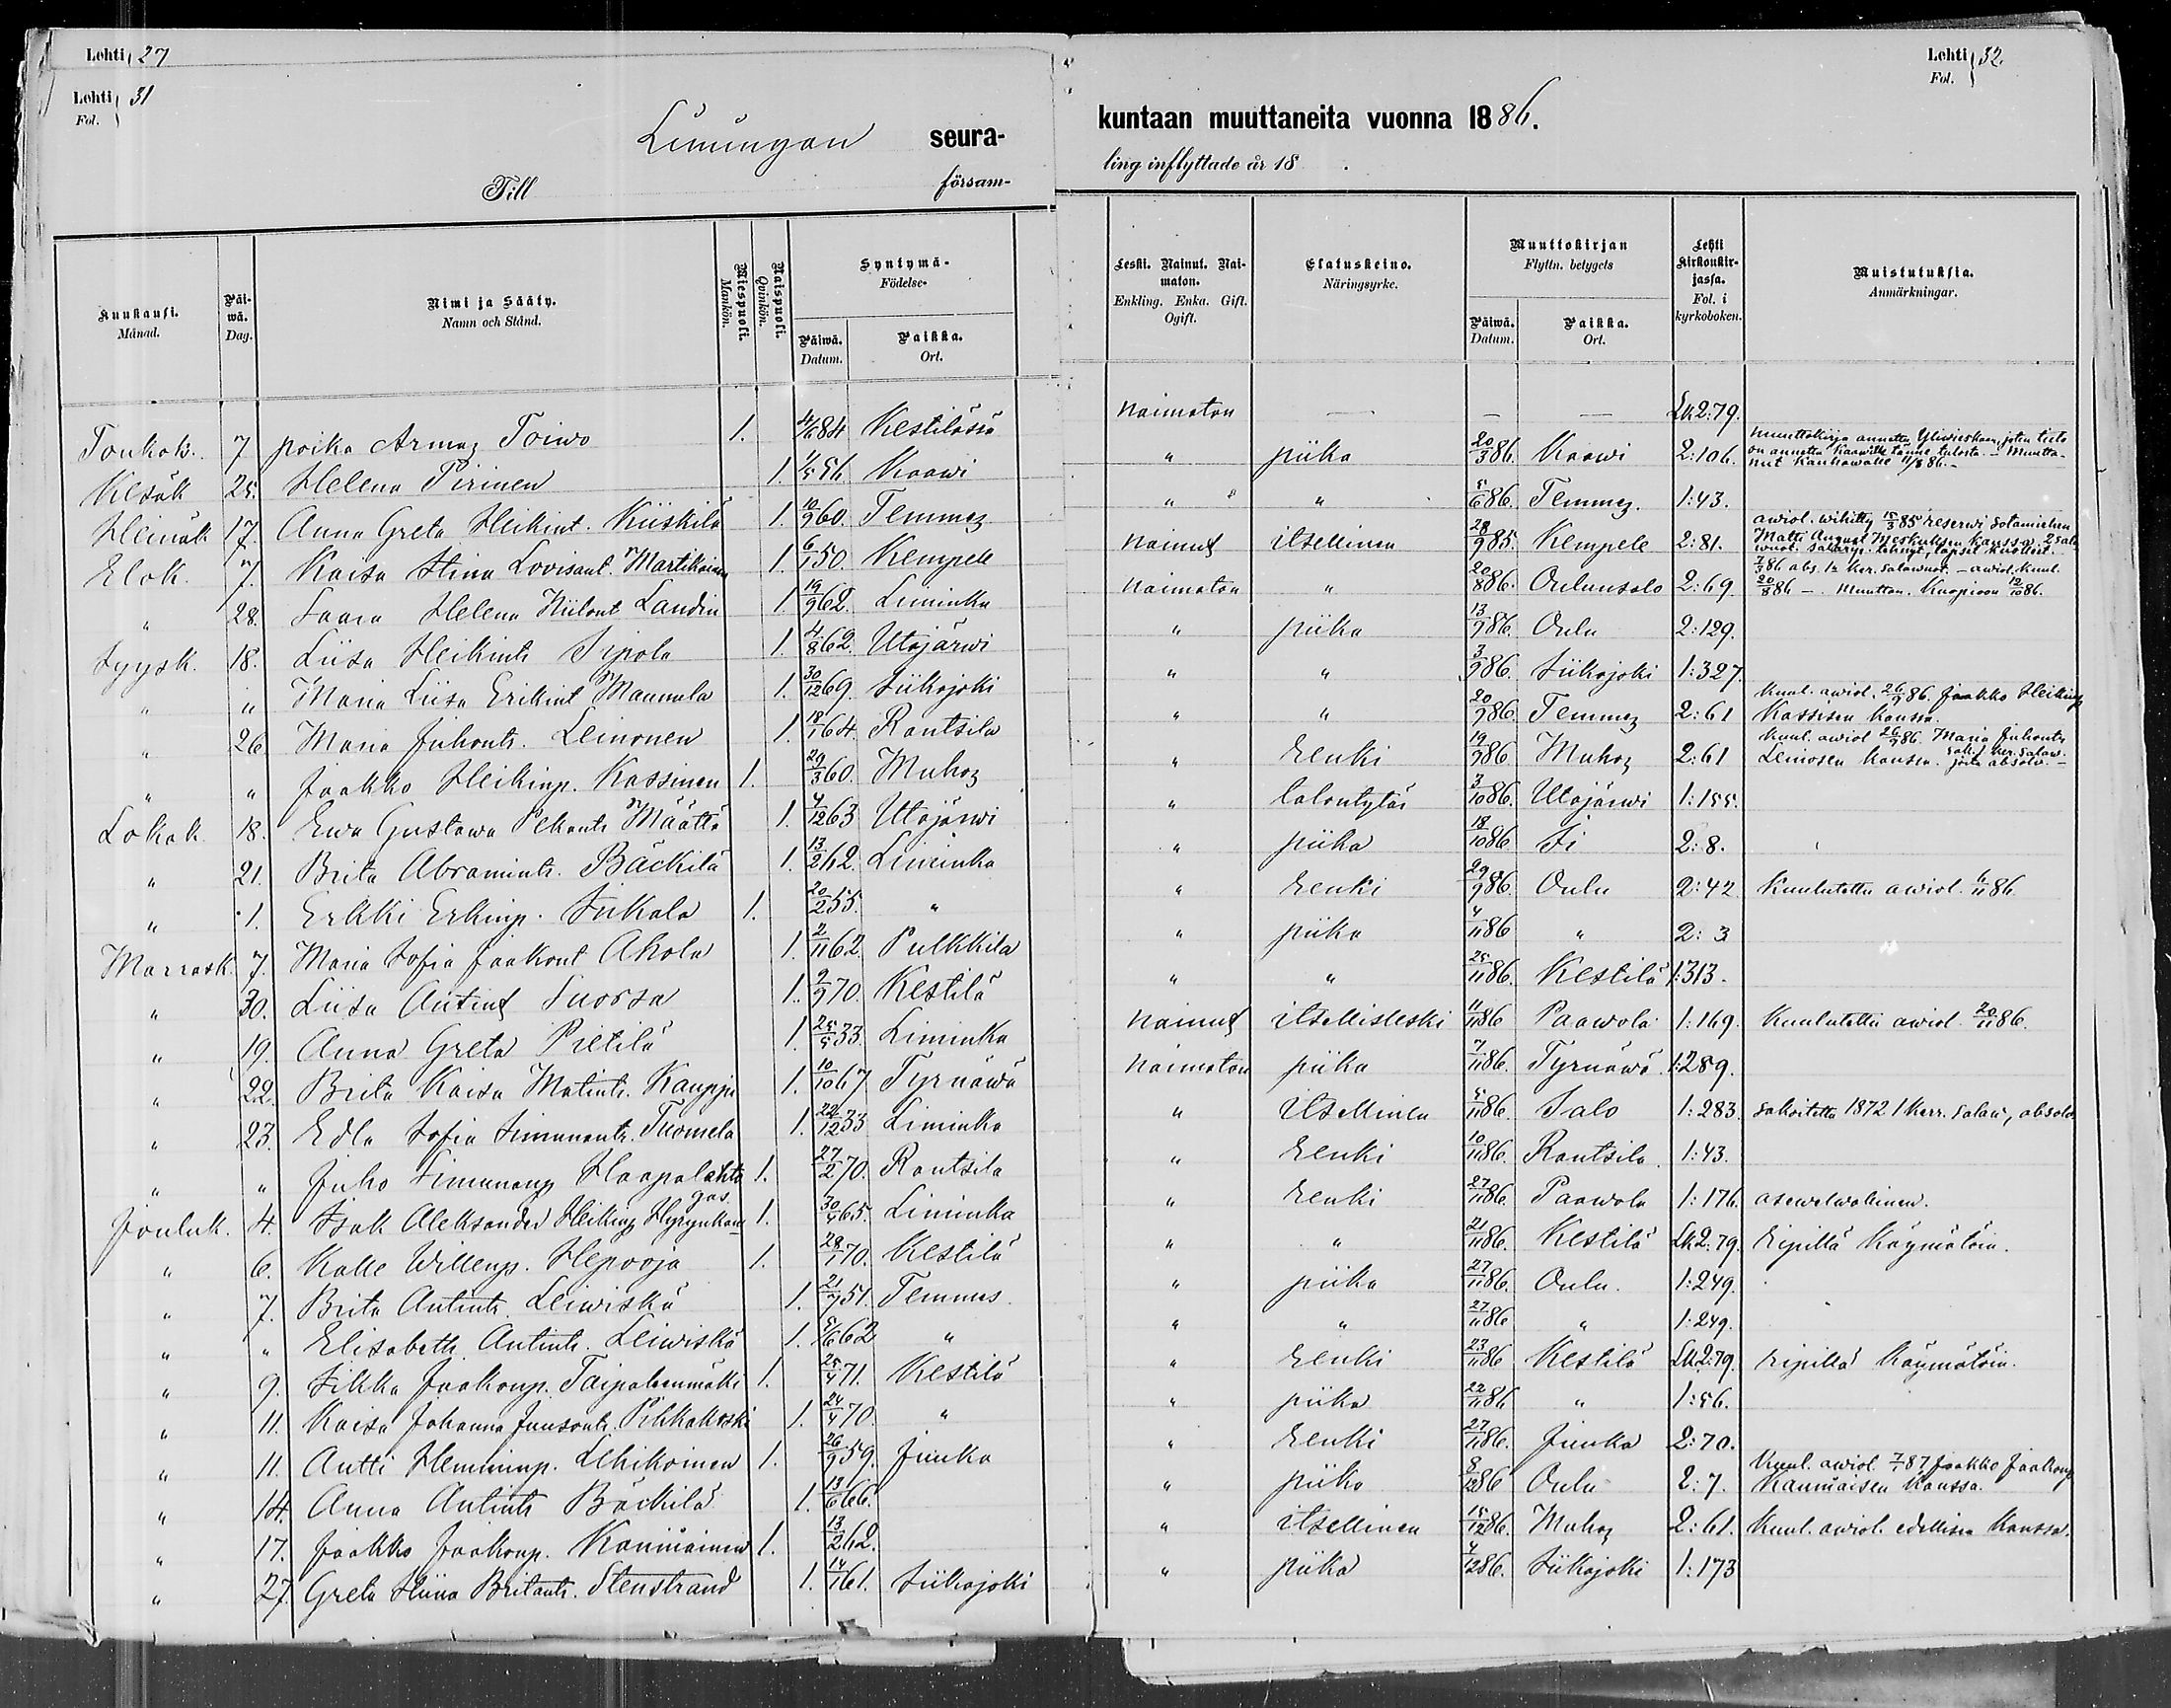 Lehti 27
Lehti 31
Fol.
Limingan seura-
Till försam-
Kuukausi. Månad.
Päiwä. Dag.
Nimi ja Sääty. Namn och Stånd.
Miespuoli. Mankön.
Naispuoli. Qvinkön.
Syntymä- Födelse-
Päiwä. Datum.
Paikka. Ort.
Toukok. 7 poika Armas Toiwo 1. 4/6 84 Kestilässä
Kesäk 25. Helena Pirinen 1. 1/5 56 Kaawi
Heinäk 17. Anna Greta Heikint. Kiiskilä 1. 10/9 60. Temmes
Elok. 7. Kaisa Stina Lovisant. Martikainen 1. 6/1 50. Kempele
" 28. Saara Helena Niilont Landin 1. 19/9 62. Liminka
Syysk. 18. Liisa Heikint. Sipola 1. 4/8 62. Utajärwi
" " Maria Liisa Erikint Mannila 1. 30/12 69. Siikajoki
" 26 Maria Juhont. Leinonen 1. 18/1 64. Rantsila
" " Jaakko Heikinp. Kassinen 1. 29/3 60. Muhos
Lokak 18. Ewa Gustawa Pekant. Määttä 1. 4/12 63 Utajärwi
" 21. Brita Abramint. Bäckilä 1. 13/2 62. Liminka
" 1. Erkki Erkinp. Siikala 1. 20/2 55. "
Marrask. 7. Maria Sofia Jaakont Ahola 1. 2/11 62. Pulkkila
" 30. Liisa Antint Suorsa 1. 9/9 70. Kestilä
" 19. Anna Greta Pietilä 1. 25/5 33. Liminka
" 22. Brita Kaisa Matint. Kauppi 1. 10/10 67. Tyrnäwä
" 23. Edla Sofia Simunant. Tuomela 1. 22/12 33 Liminka
" " Juho Simunanp Haapalahto 1. 27/2 70. Rantsila
Jouluk. 4. Isak Aleksander Heikinp Hyrynkangas 1. 30/4 65. Liminka
" 6. Kalle Willenp. Hepooja 1. 28/1 70. Kestilä
" 7. Brita Antint. Leiwiskä 1. 21/7 51. Temmes
" " Elisabeth Antint. Leiwiskä 1. 5/6 62 "
" 9. Iikka Jaakonp. Taipaleenmäki 1. 25/4 71. Kestilä
" 11. Kaisa Johanna Juusont. Pihkakoski 1. 24/4 70. "
" 11. Antti Hemminp. Lehikoinen 1. 26/9 59. Juuka
" 14. Anna Antint. Bäckilä 1. 13/6 66.
" 17. Jaakko Jaakonp. Kanniainen 1. 13/2 62.
" 27. Greta Stiina Britant. Stenstrand 1. 14/1 61. Siikajoki
Lehti 32.
Fol.
kuntaan muuttaneita vuonna 1886.
ling inflyttade år 18 .
Leski. Nainut. Naimaton. Enkling. Enka. Gift. Ogift.
Elatuskeino. Näringsyrke.
Muuttokirjan Flyttn. betygets
Päiwä. Datum.
Paikka. Ort.
Lehti kirkonkirjassa. Fol. i kyrkoboken.
Muistutuksia. Anmärkningar.
Naimaton — — — Lk 2:79.
" piika 20/3 86. Kaawi 2:106. muuttokirja annettu Yliwieskaan, joten tieto on annettu Kaawille tänne tulosta. – Muuttanut Kauhawalle 11/8 86. –
" " 5/6 86. Temmes. 1:43.
Nainut itsellinen 28/9 85. Kempele 2:81. awiol. wihitty 15/3 85 reserwi sotamiehen Matti August Meskuksen kanssa
Naimaton " 20/8 86. Oulunsalo 2:69 20/8 86 – . Muuttan. Kuopioon 12/10 86.
" piika 13/9 86. Oulu 2:129.
" " 3/9 86. Siikajoki 1:327.
" " 20/9 86. Temmes 2:61 Kuul. awiol. 26/9 86. Jaakko Heikinp Kassisen kanssa.
" Renki 19/9 86 Muhos 2:61 Kuul. awiol 26/9 86. Maria Juhont. Leinosen kanssa.
" talontytär 3/10 86. Utajärwi 1:155.
" piika 18/10 86 Ii 2:8.
" Renki 29/9 86. Oulu 2:42 Kuulutettu awiol. 6/11 86
" piika 4/11 86 " 2:3
" " 25/11 86. Kestilä 1:313.
Nainut itsellisleski 11/11 86 Paawola 1:169. Kuulutettu awiol. 20/11 86.
Naimaton piika 7/11 86. Tyrnäwä 1:289.
" itsellinen 5/11 86. Salo 1:283. sakoitettu 1872 1 kerr. salaw, absolv
" Renki 10/11 86. Rantsila. 1:43.
" Renki 27/11 86. Paawola 1:176. asewelwollinen.
" " 21/11 86. Kestilä Lk 2:79. Ripillä käymätöin.
" piika 27/11 86. Oulu. 1:249.
" " 27/11 86 " 1:249.
" Renki 23/11 86 Kestilä Lk 2:79. Ripillä käymätöin.
" piika 22/11 86 " 1:56.
" Renki 27/11 86. Juuka 2:70.
" piika 8/12 86 Oulu 2:7. Kuul. awiol. 7/1 87 Jaakko Jaakonp Kanniaisen kanssa.
" itsellinen 15/12 86. Muhos 2:61. Kuul. awiol. edellisen kanssa.
" piika 4/12 86. Siikajoki 1:173